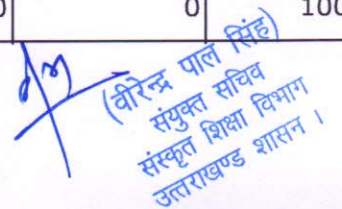 0 0 100
(वीरेन्द्र पाल सिंह)
संयुक्त सचिव
संस्कृत शिक्षा विभाग
उत्तराखण्ड शासन ।